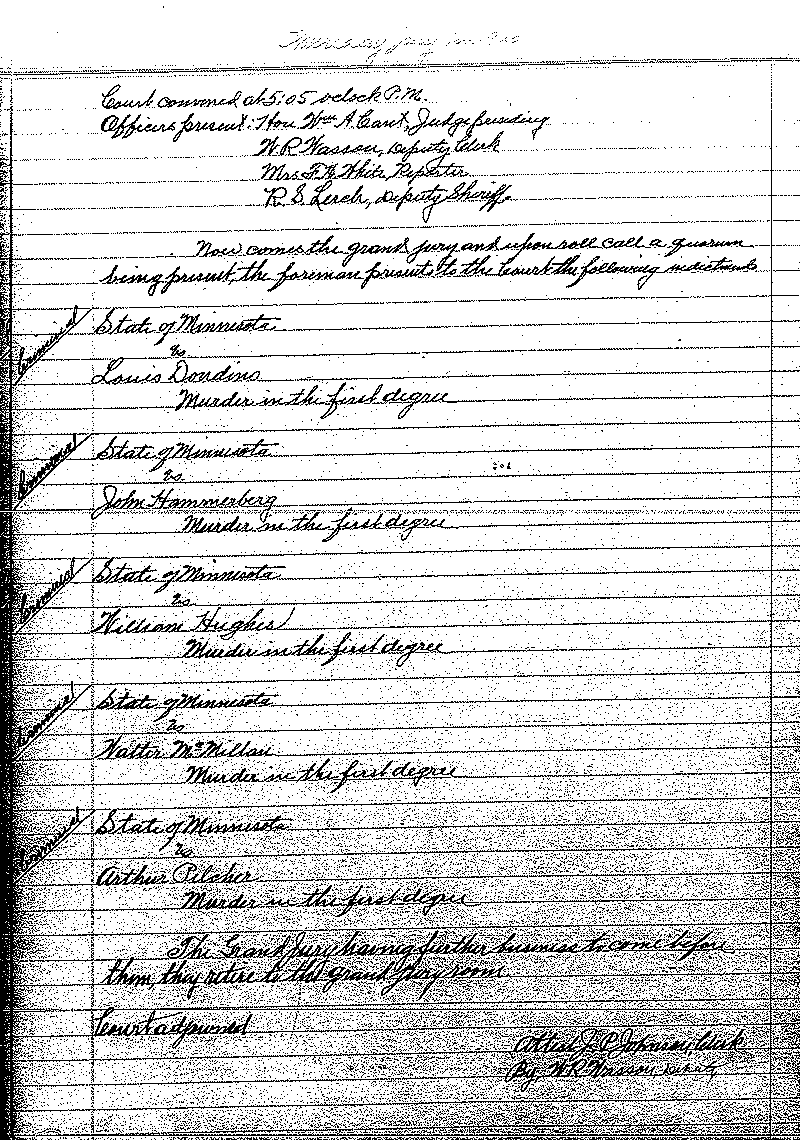 Thursday July
Court convened at 5:05 oclock P.M.
Officers present: Hon Wm A Cant, Judge presiding
W. R Wasson, Deputy Clerk
Mrs. F. H. White, Reporter
R. S. Lerch, Deputy Sheriff.
Now comes the grand jury and upon roll call a quorum
being present, the foreman presents to the Court the following indictments
Criminal
State of Minnesota
vs
Louis Dondino
Murder in the first degree
Criminal
State of Minnesota
vs
John Hammerberg
Murder in the first degree
Criminal
State of Minnesota
vs
William Hughes
Murder in the first degree
Criminal
State of Minnesota
vs
Walter McMillan
Murder in the first degree
Criminal
State of Minnesota
vs
Arthur Pilcher
Murder in the first degree
The Grand Jury having further business to come before
them, they retire to the grand jury room
Court adjourned
Attest J. P. Johnson, Clerk
By W. R Wasson Deputy